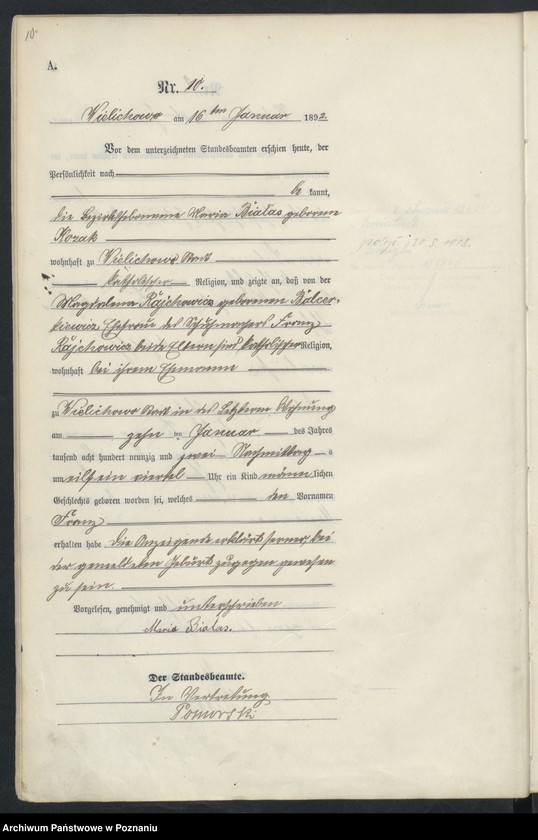 10.
A.
Nr. 10.
Wielichowo am 16ten Januar 1892.
Vor dem unterzeichneten Standesbeamten erschien heute, der
Persönlichkeit nach
be kannt,
die Bezirkshebamme Maria Białas geborene
Kozak
wohnhaft zu Wielichowo Stadt
katholischer Religion, und zeigte an, daß von der
Magdalena Rajchowicz geborenen Balcer-
kiewicz, Ehefrau des Schuhmachers Franz
Rajchowicz beide Eltern sind katholischer Religion,
wohnhaft bei ihrem Ehemanne
zu Wielichowo Stadt in des Letzteren Wohnung
am zehn ten Januar des Jahres
tausend acht hundert neunzig und zwei Nachmittag s
um eilf ein viertel Uhr ein Kind männ lichen
Geschlechts geboren worden sei, welches den Vornamen
Franz
erhalten habe. Die Anzeigende erklärt ferner, bei
der gemeldeten Geburt zugegen gewesen
zu sein.
Vorgelesen, genehmigt und unterschrieben
Maria Białas.
Der Standesbeamte.
In Vertretung
Pomorski
Archiwum Państwowe w Poznaniu